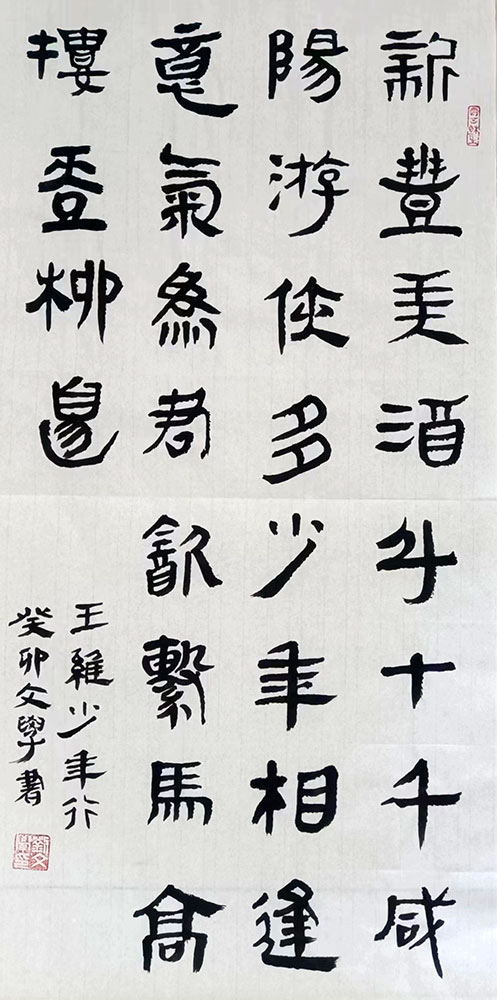 新豐美酒斗十千咸
陽游俠多少年相逢
意氣為君飲繫馬高
樓垂柳邊
王維少年行
癸卯文學書